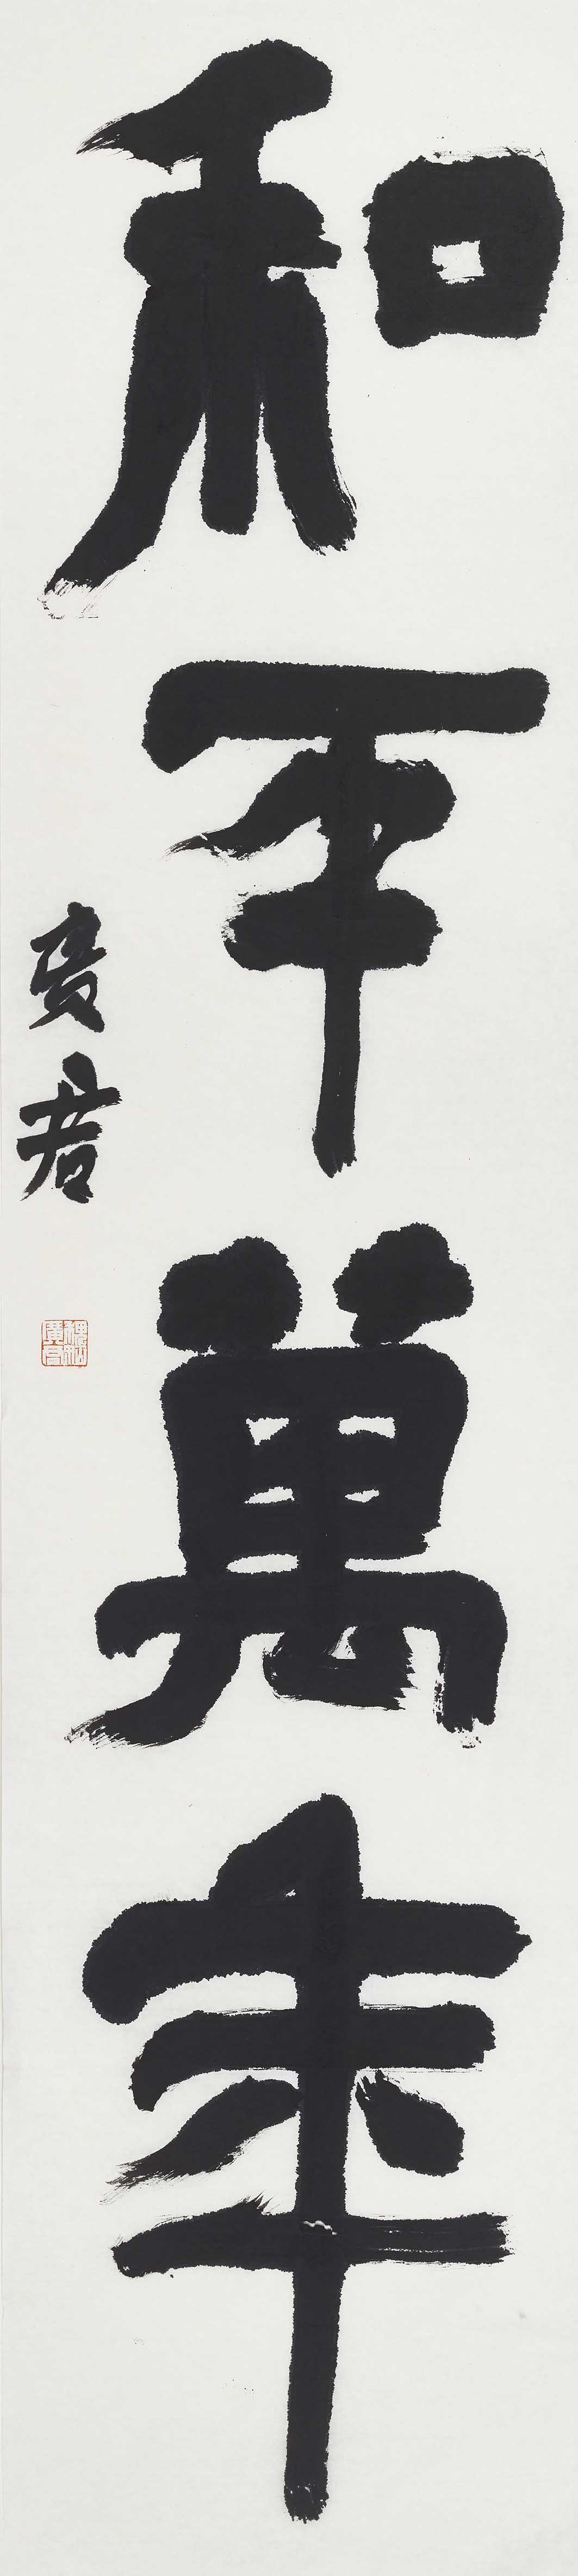 和平萬年
廣君